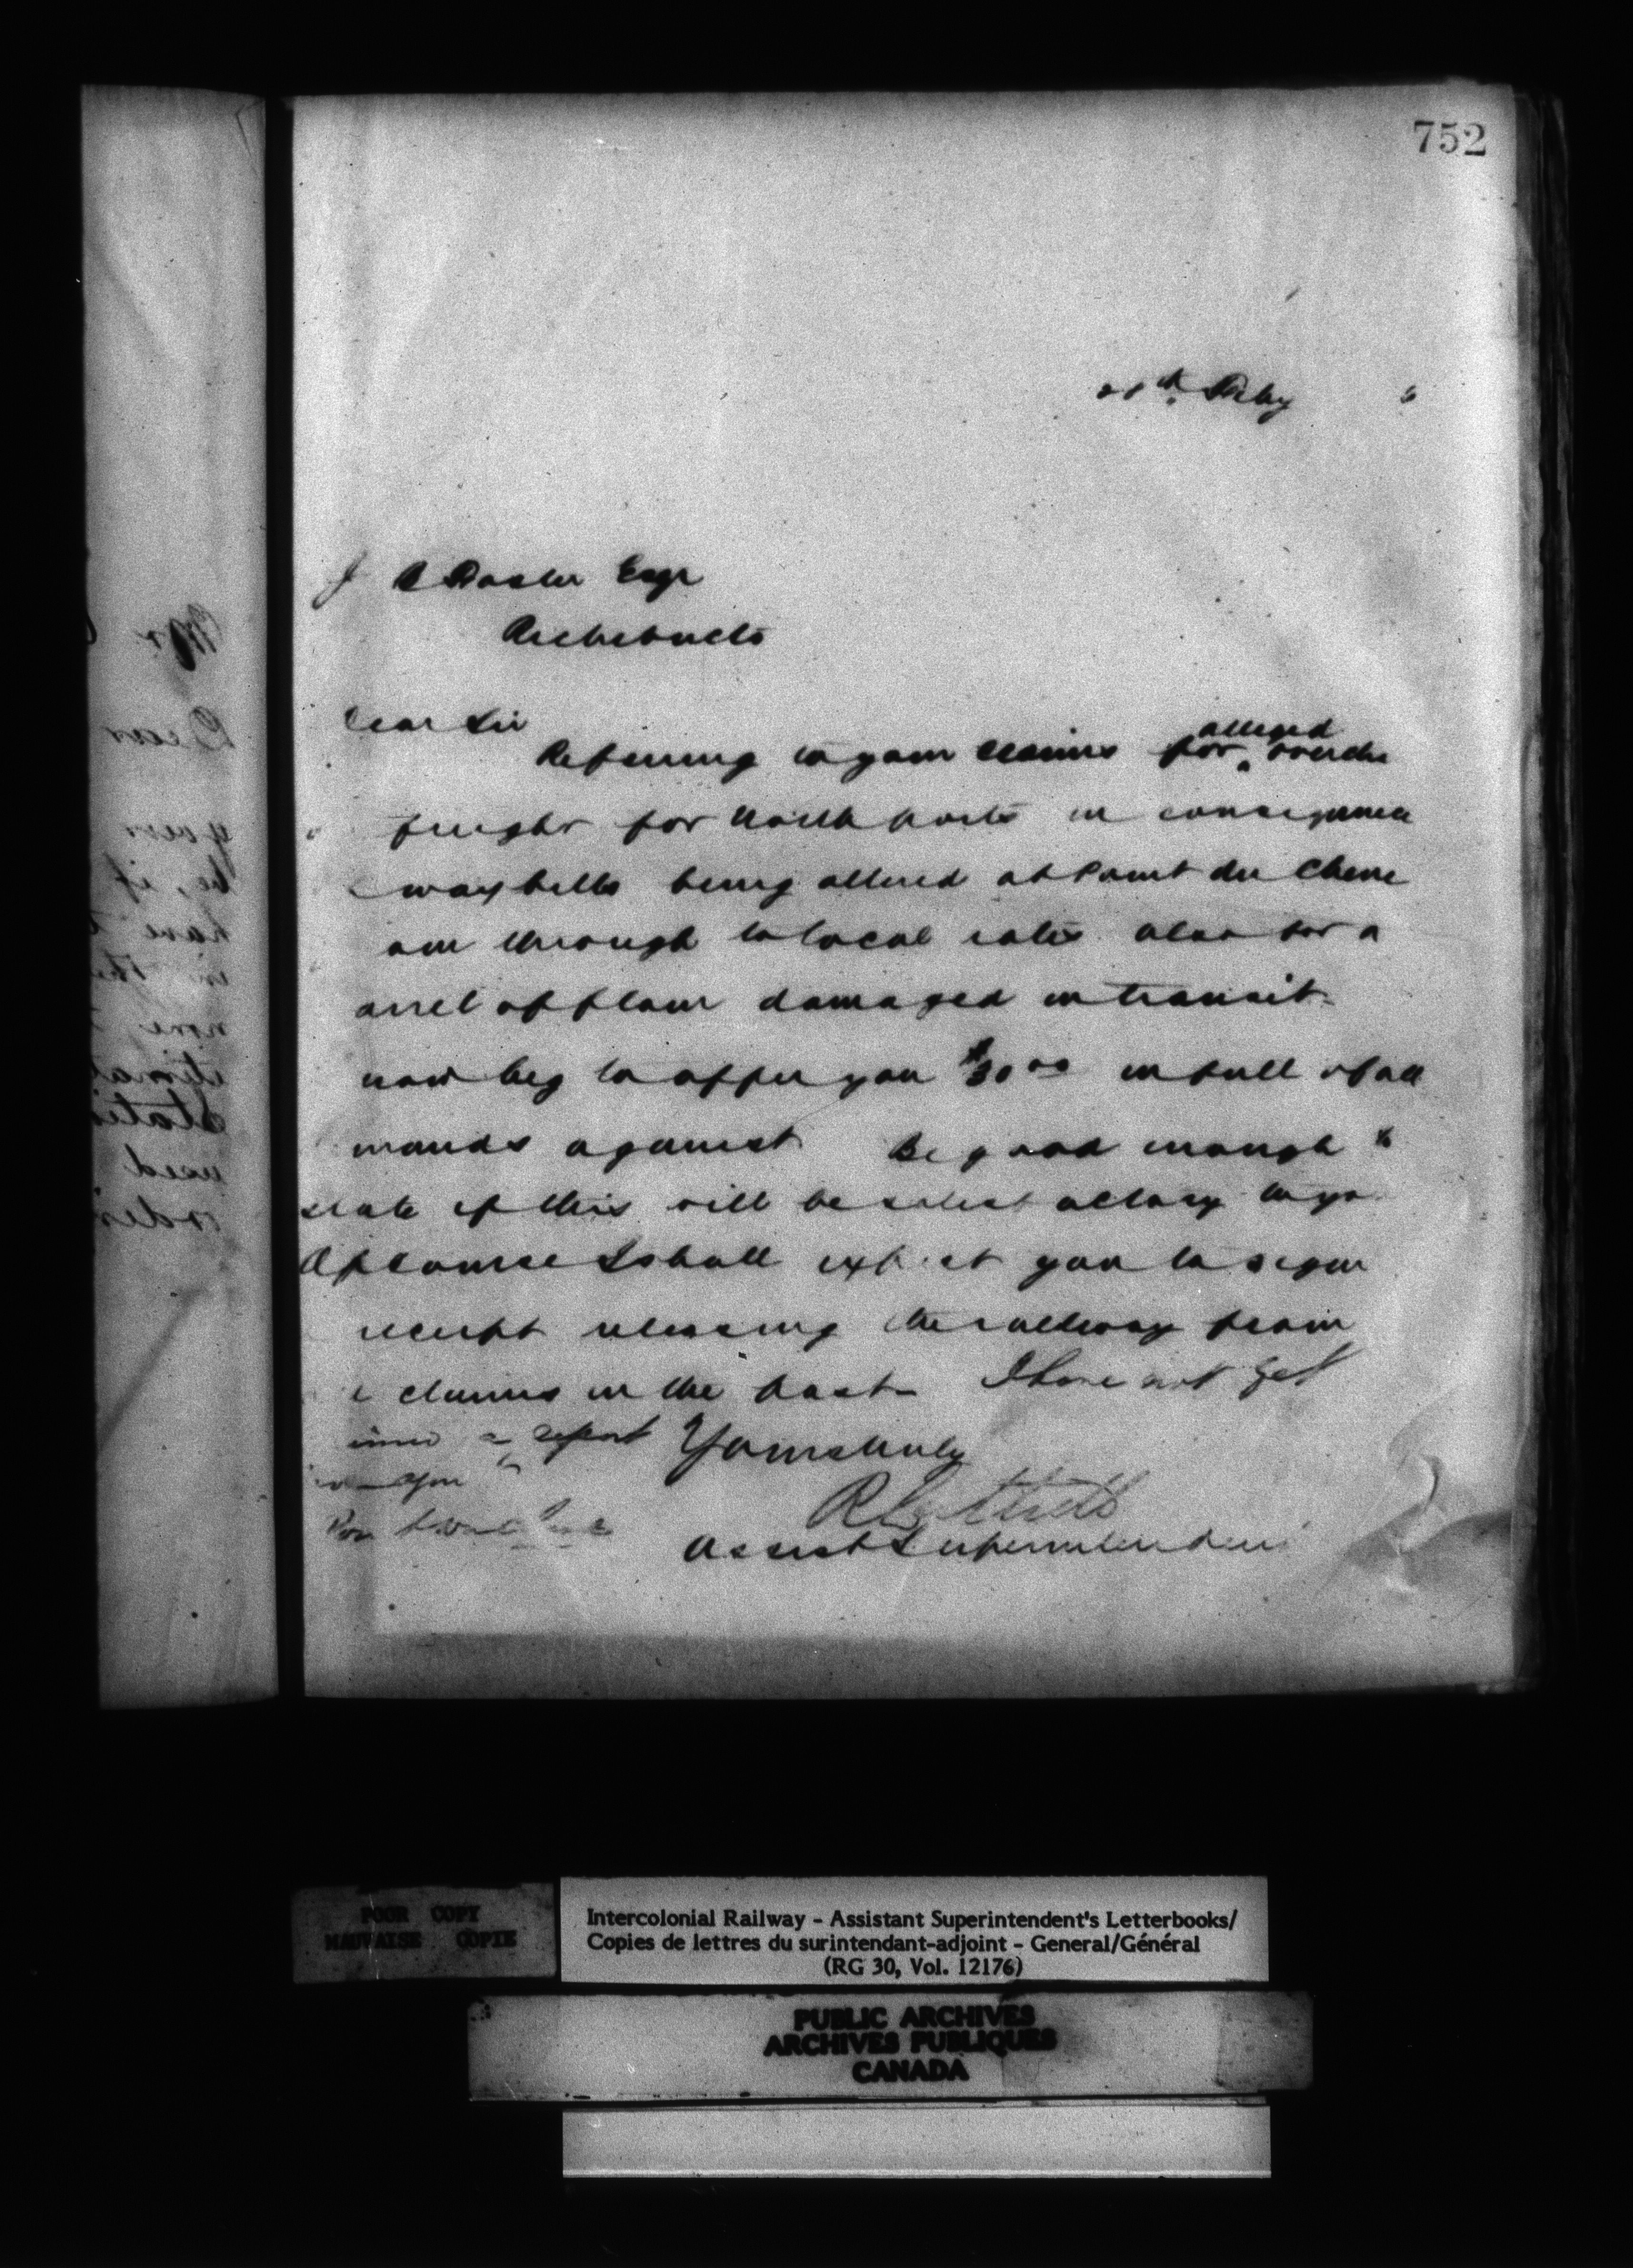 752
28th Feby 6
J Esqr
Richibucto
Dear Sir
Referring to your claims for alleged overcha
freight for North ports in consequence
way bills being altered at Point du Chene
om through to local rates also for a
arrel of flour damaged in transit
now beg to offer you $30 00 in full of all
mands against Be good enough to
state if this will be satisfactory to yo
Of course I shall expect you to sign
receipt releasing the railway from
claims in the past I have not yet
a report Yours truly
you
Assist Superintendent
Mr
Dear
your
be, if
have
in the
none
Stati
used
order
POOR COPY
MAUVAISE COPIE
Intercolonial Railway - Assistant Superintendent's Letterbooks/
Copies de lettres du surintendant-adjoint - General/Général
(RG 30, Vol. 12176)
PUBLIC ARCHIVES
ARCHIVES PUBLIQUES
CANADA